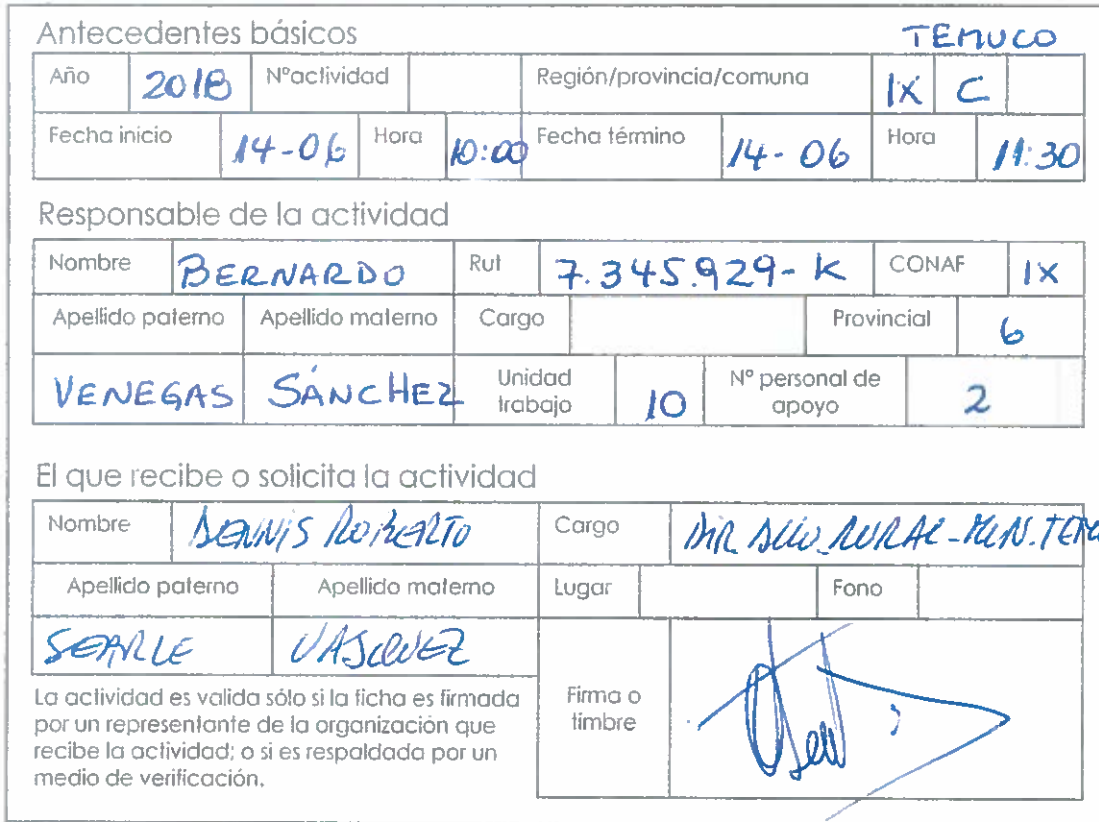 Antecedentes básicos TEMUCO
Año 2018 N°actividad Región/provincia/comuna IX C
Fecha inicio 14-06 Hora 10:00 Fecha término 14-06 Hora 11:30
Responsable de la actividad
Nombre BERNARDO Rut 7.345.929-K CONAF IX
Apellido paterno Apellido materno Cargo Provincial 6
VENEGAS SÁNCHEZ Unidad trabajo 10 N° personal de apoyo 2
El que recibe o solicita la actividad
Nombre DENNIS ROBERTO Cargo DIR RURAL-MUN.TEMU
Apellido paterno Apellido materno Lugar Fono
SEARLE VASQUEZ
La actividad es valida sólo si la ficha es firmada
por un representante de la organización que
recibe la actividad; o si es respaldada por un
medio de verificación.
Firma o
timbre